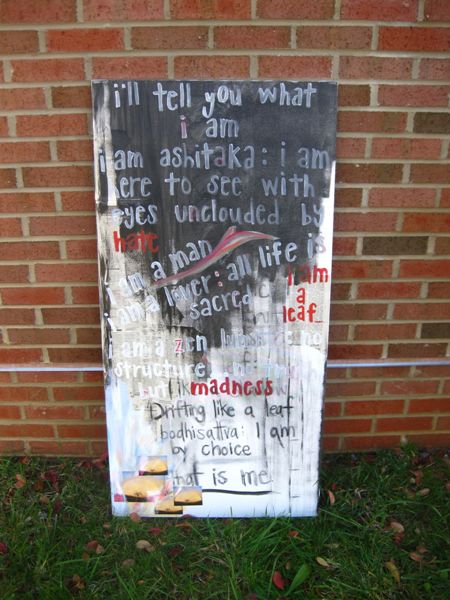 i'll tell you what
i am
i am ashitaka: i am
here to see with
eyes unclouded by
hate
i am a man
i am a lover: all life is
sacred
i am
a
leaf
i am a zen
structure
but madness
Drifting like a leaf
bodhisattva: I am
by choice
that is me